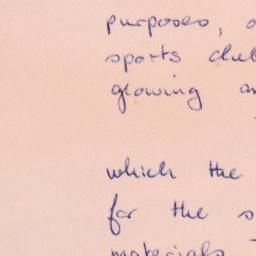 purposes,
sports
glowing
which the
for the
materials